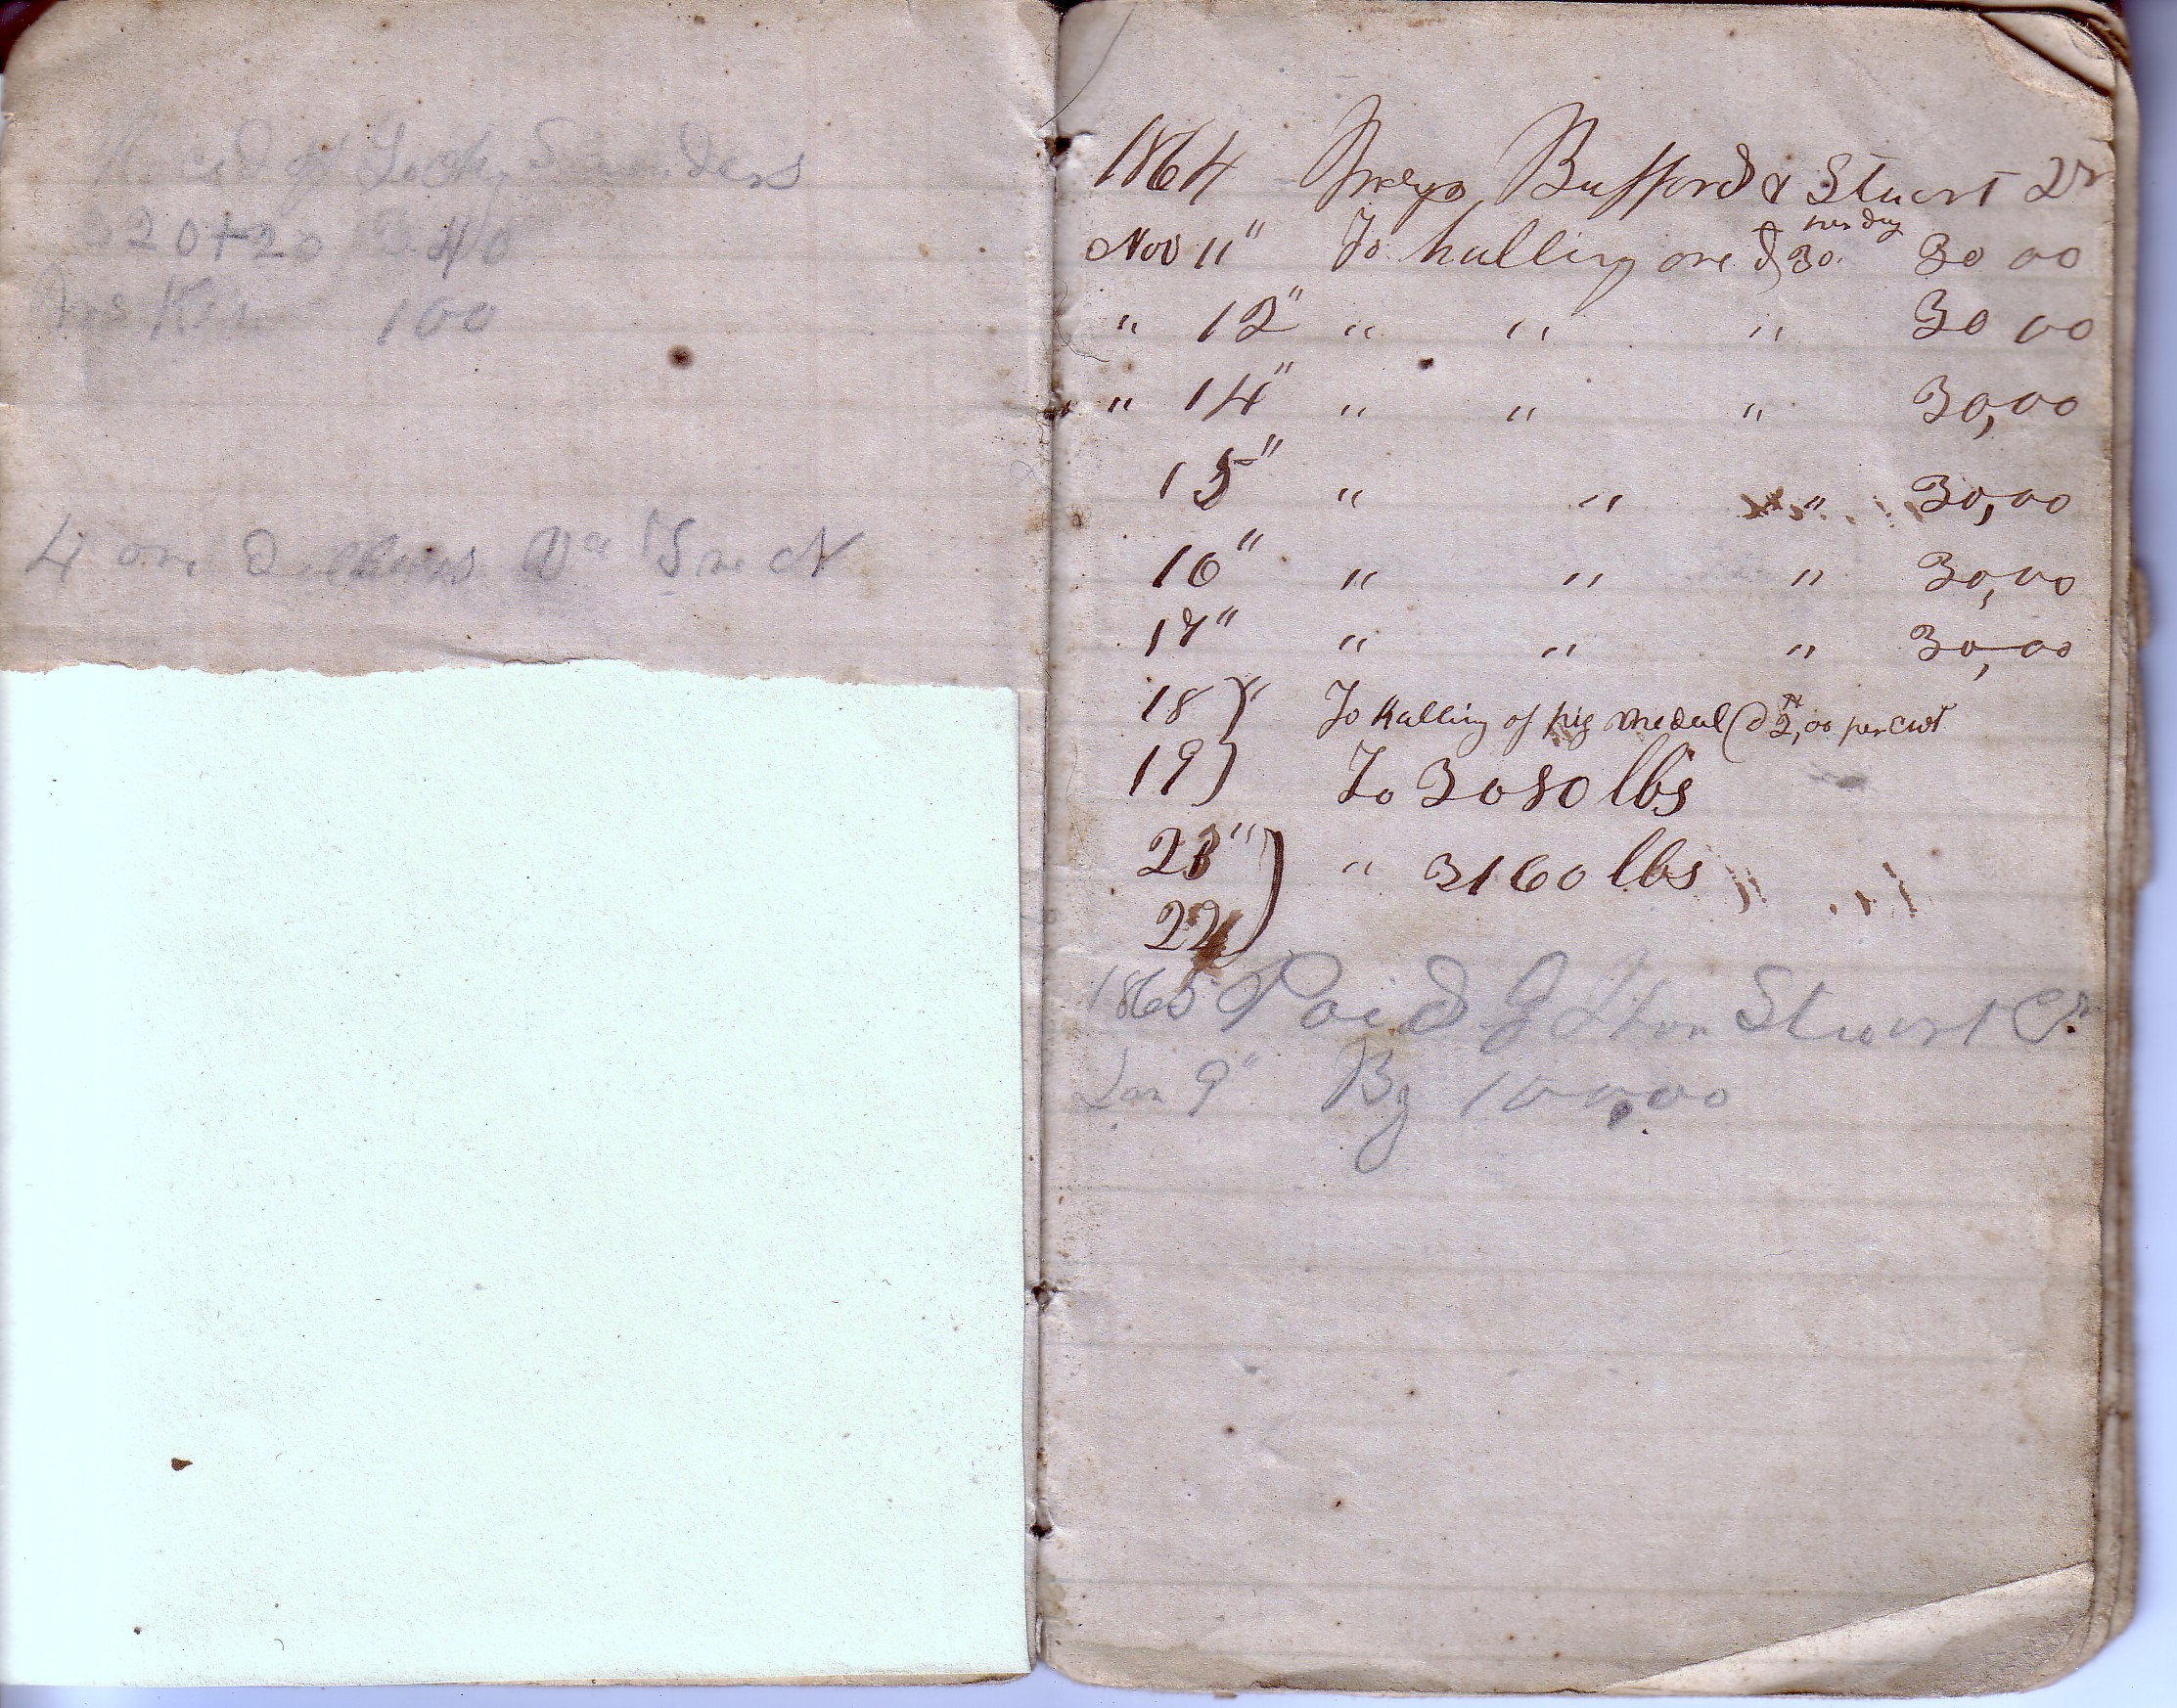 Saunders
20+20 40
100
4 on
1864 Bufford & Stuart Dr
per day
Nov 11" To halling ore $30. 30 00
" 12" " " " 30 00
" 14" " " " 30,00
15" " " " 30,00
16" " " " 30,00
17" " " " 30,00
18 )" To halling of pig medal @ $2,00 per cwt
19 ) To 3080 lbs
23" ) " 3160 lbs
22 )
1865 Paid J Stuart Cr
Jan 9" By 100,00